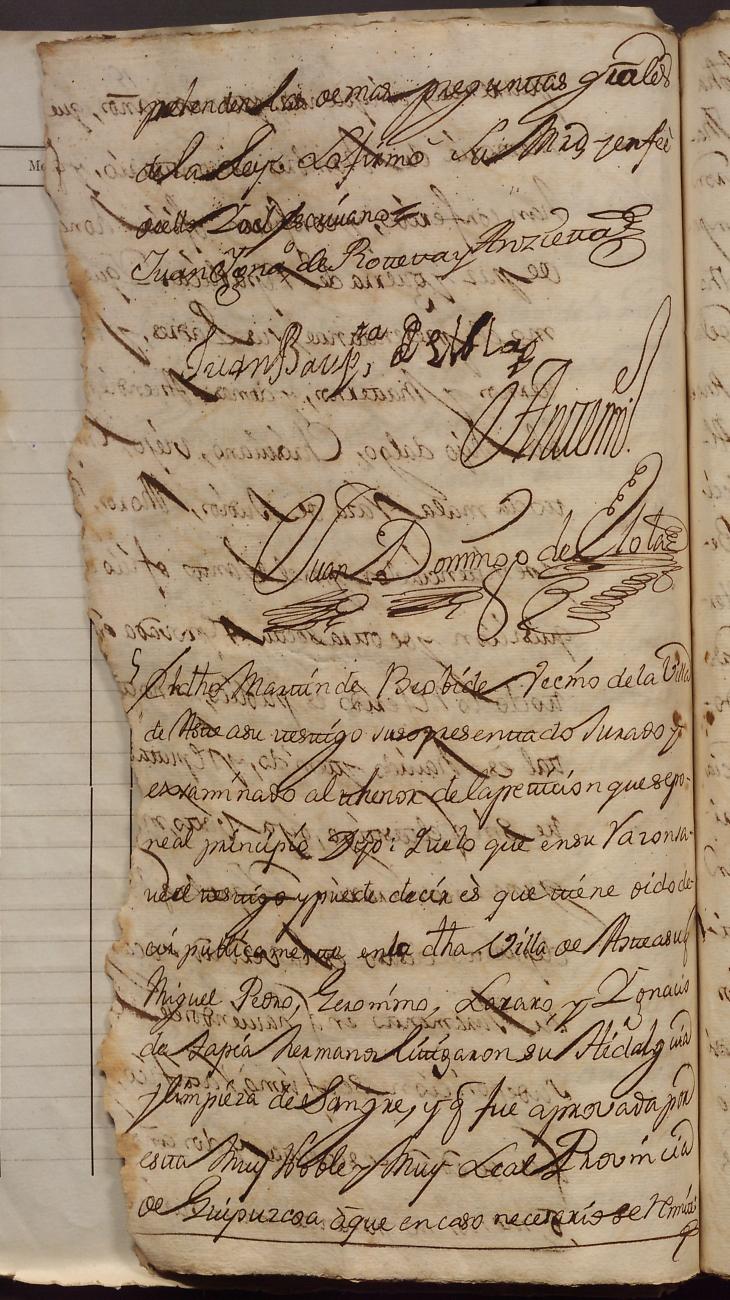 prehenden las demas preguntas g̃rales
de la Ley. Lo firmò Su Mrd, y en feè
de ello Yo el escriuano=
Juan Ygnº de Rotetta y Anzieta
Juan Baupta
Antemi.
Juan Domingo de
El dho Martin de Beobide Vecino de la Villa
de Asteasu testigo suso presenttado Jurado y
exsaminado al thenor de la petición que se po-
ne al principio Dijo: Que lo que en su razon sa-
ue el testigo y puede decir es que tiene oido de-
cir publicamente en la dha Villa de Asteasu q̃
Miguel Pedro, Geronimo, Lazaro, y Ygnacio
de Zapia hermanos litigaron su Hidalguia
y limpieza de Sangre, y q̃ fue aprovada por
estta Muy Noble y Muy Leal Provincia
de Guipuzcoa, à que en caso necesario se remite